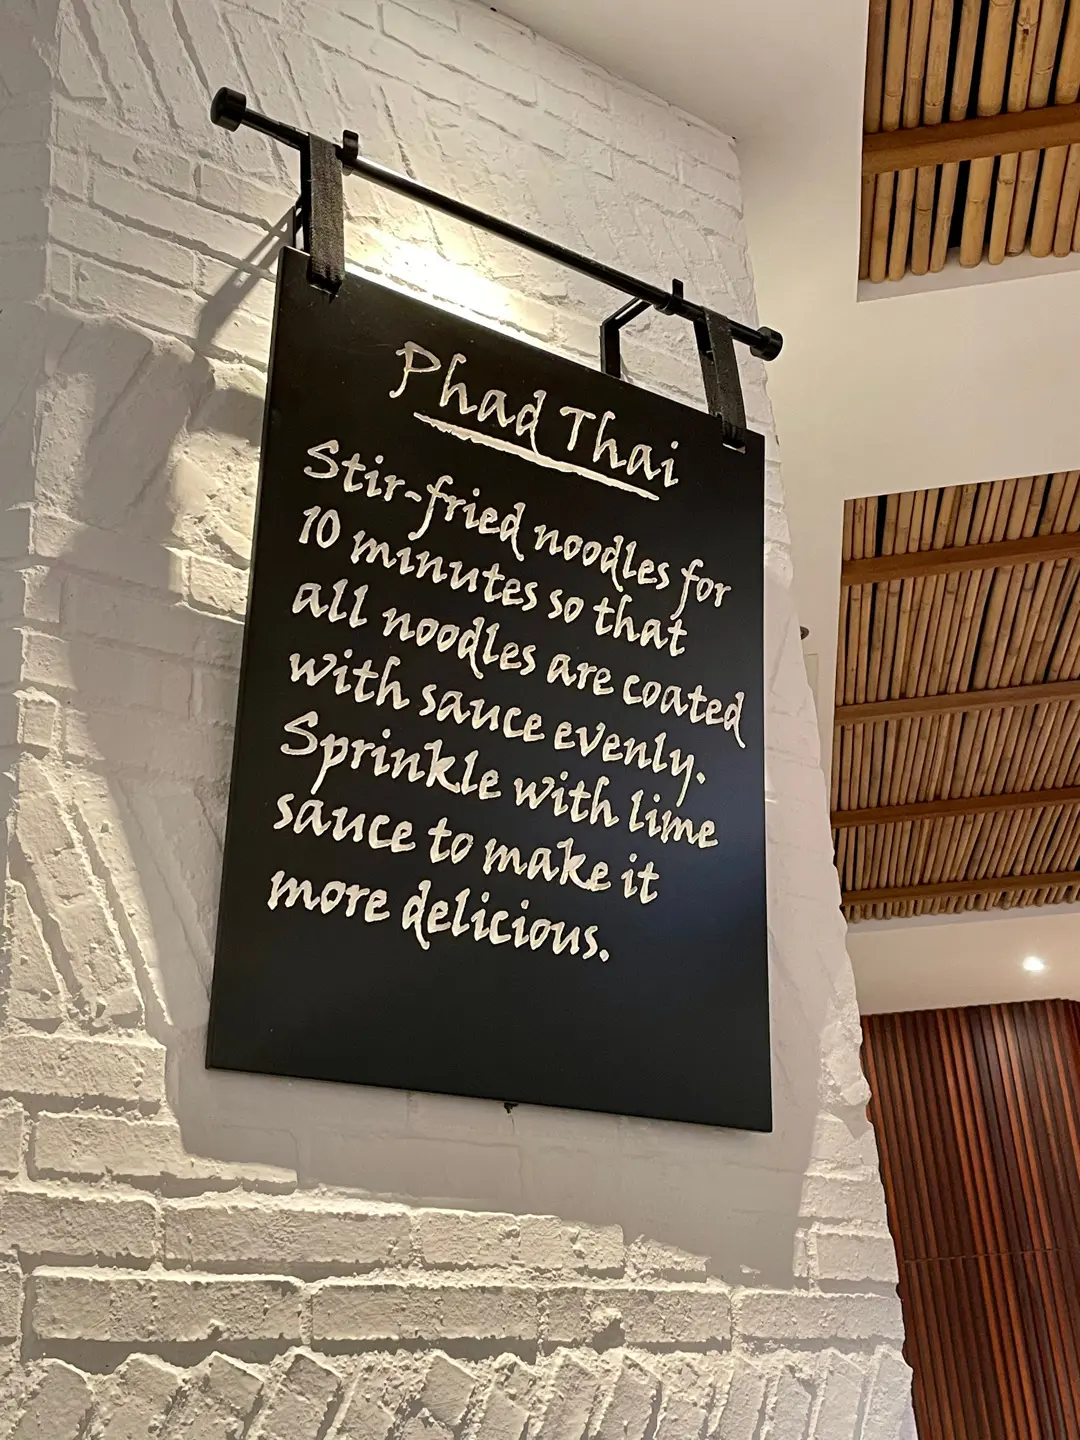 Phad Thai
Stir-fried noodles for
10 minutes so that
all noodles are coated
with sauce evenly.
Sprinkle with lime
sauce to make it
more delicious.